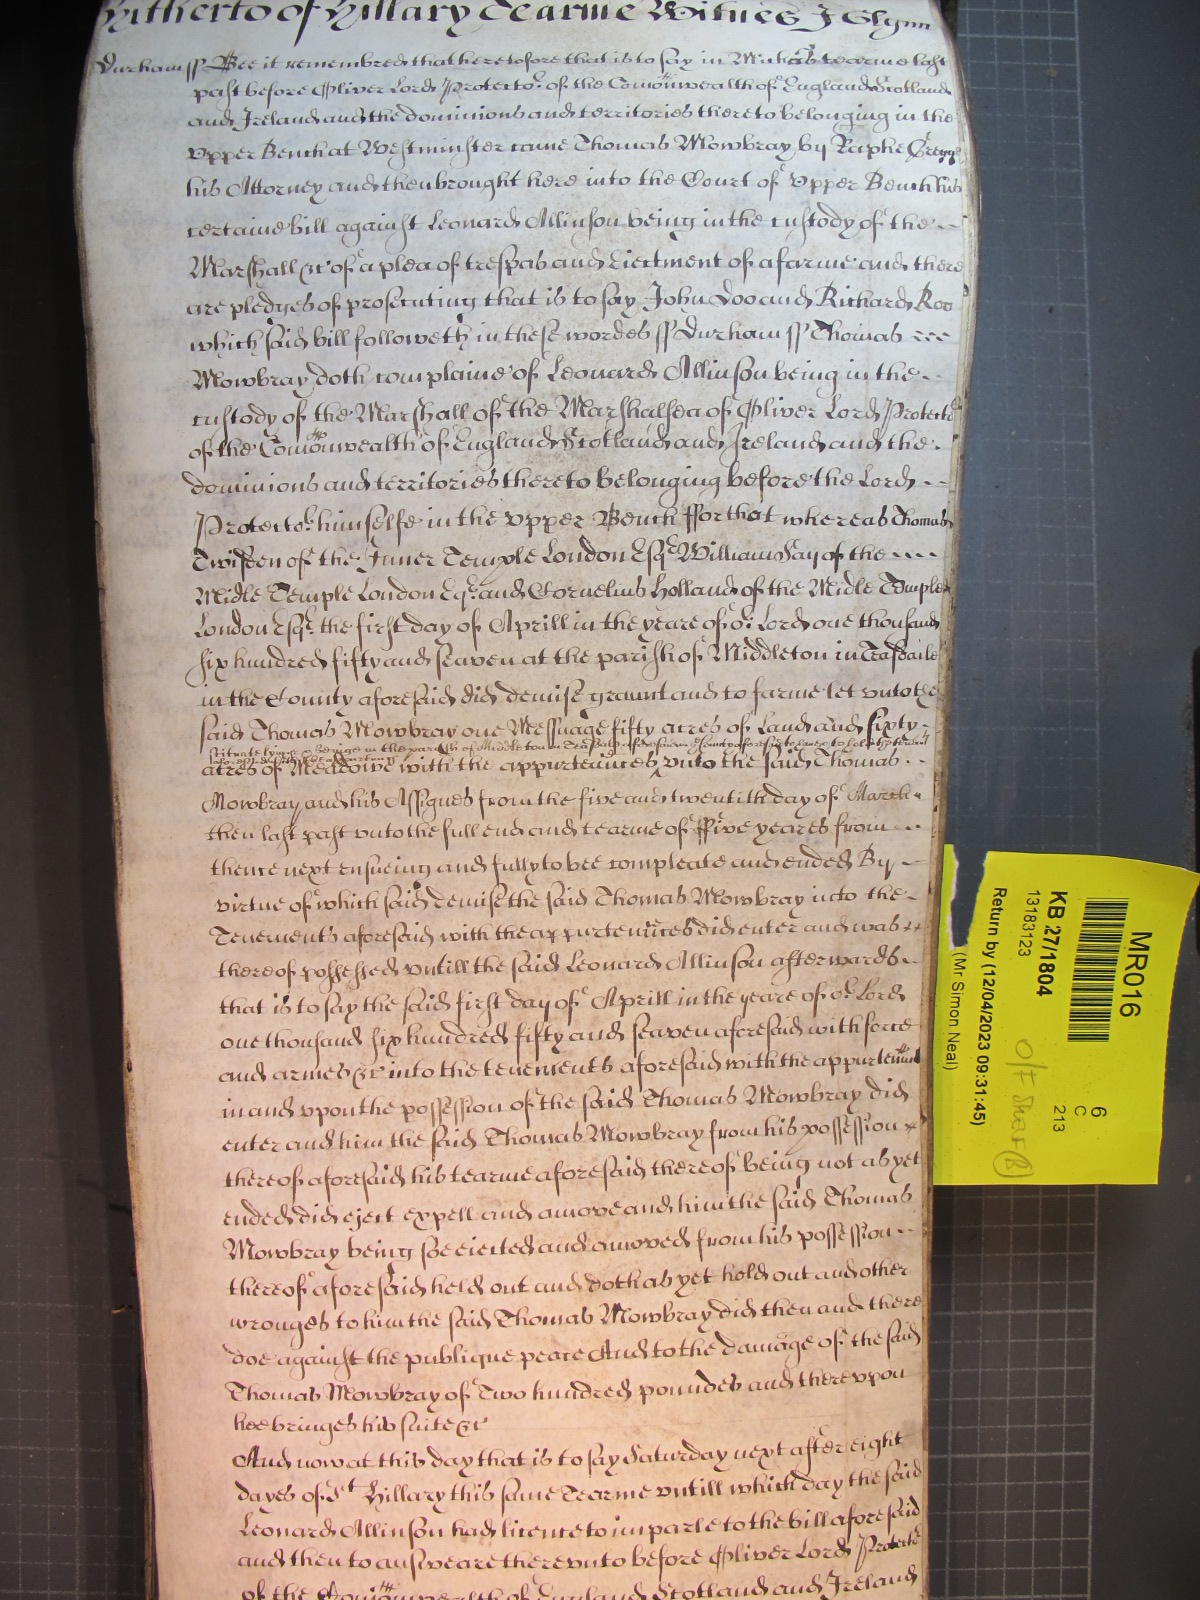 hitherto of Hillary Tearme Witnes J Glynn
Durham ss Bee it remembred that heretofore that is to say in Michas tearme last
past before Oliver Lord Protector of the Comonwealth of England Scotland
and Ireland and the dominions and territories thereto belonging in the
Vpper Bench at Westminster came Thomas Mowbray by Raphe Gregge
his Attorney and then brought here into the Court of Vpper Bench his
certaine bill against Leonard Allinson being in the custody of the
Marshall &c of a plea of trespas and eiectment of a farme and there
are pledges of prosecuting that is to say John Doo and Richard Roo
which said bill followeth in these wordes ss Durham ss Thomas
Mowbray doth complaine of Leonard Allinson being in the
custody of the Marshall of the Marshalsea of Oliver Lord Protector
of the Comonwealth of England Scotland and Ireland and the
dominions and territories thereto belonging before the Lord
Protector himselfe in the Vpper Bench ffor that whereas Thomas
Twisden of the Inner Temple London Esqr William Say of the
Midle Temple London Esqr and Cornelius Holland of the Midle Temple
London Esqr the first day of Aprill in the yeare of or Lord one thousand
six hundred fifty and seaven at the parish of Middleton in Teasdaile
in the County aforesaid did demise graunt and to farme let vnto the
said Thomas Mowbray one Messuage fifty acres of Land and sixty
situate lyeing & beinge in the parish of Middleton in Teasdale aforesaid in the County aforesaid to have & to hold the tenements
aforesaid with the appurtenances
acres of Meadowe with the appurtenances vnto the said Thomas
Mowbray and his Assignes from the five and twentith day of March
then last past vnto the full end and tearme of ffive yeares from
thence next ensueing and fully to bee compleate and ended By
virtue of which said demise the said Thomas Mowbray into the
Tenements aforesaid with the appurtenances did enter and was
thereof possessed vntill the said Leonard Allinson afterwards
that is to say the said first day of Aprill in the yeare of or Lord
one thousand six hundred fifty and seaven aforesaid with force
and armes &c into the tenements aforesaid with the appurtenances
in and vpon the possession of the said Thomas Mowbray did
enter and him the said Thomas Mowbray from his possession
thereof aforesaid his tearme aforesaid thereof being not as yet
ended did eject expell and amove and him the said Thomas
Mowbray being soe eiected and amoved from his possession
thereof aforesaid held out and doth as yet hold out and other
wronges to him the said Thomas Mowbray did then and there
doe against the publique peace And to the damage of the said
Thomas Mowbray of Two hundred poundes and therevpon
hee bringes his suite &c
And now at this day that is to say Saturday next after eight
dayes of St Hillary this same Tearme vntill which day the said
Leonard Allinson had licence to imparle to the bill aforesaid
and then to answeare therevnto before Oliver Lord Protector
of the Comonwealth of England Scotland and Ireland
MR016
KB 27/1804
13183123
Return by (12/04/2023 09:31:45)
(Mr Simon Neal)
6
C
213